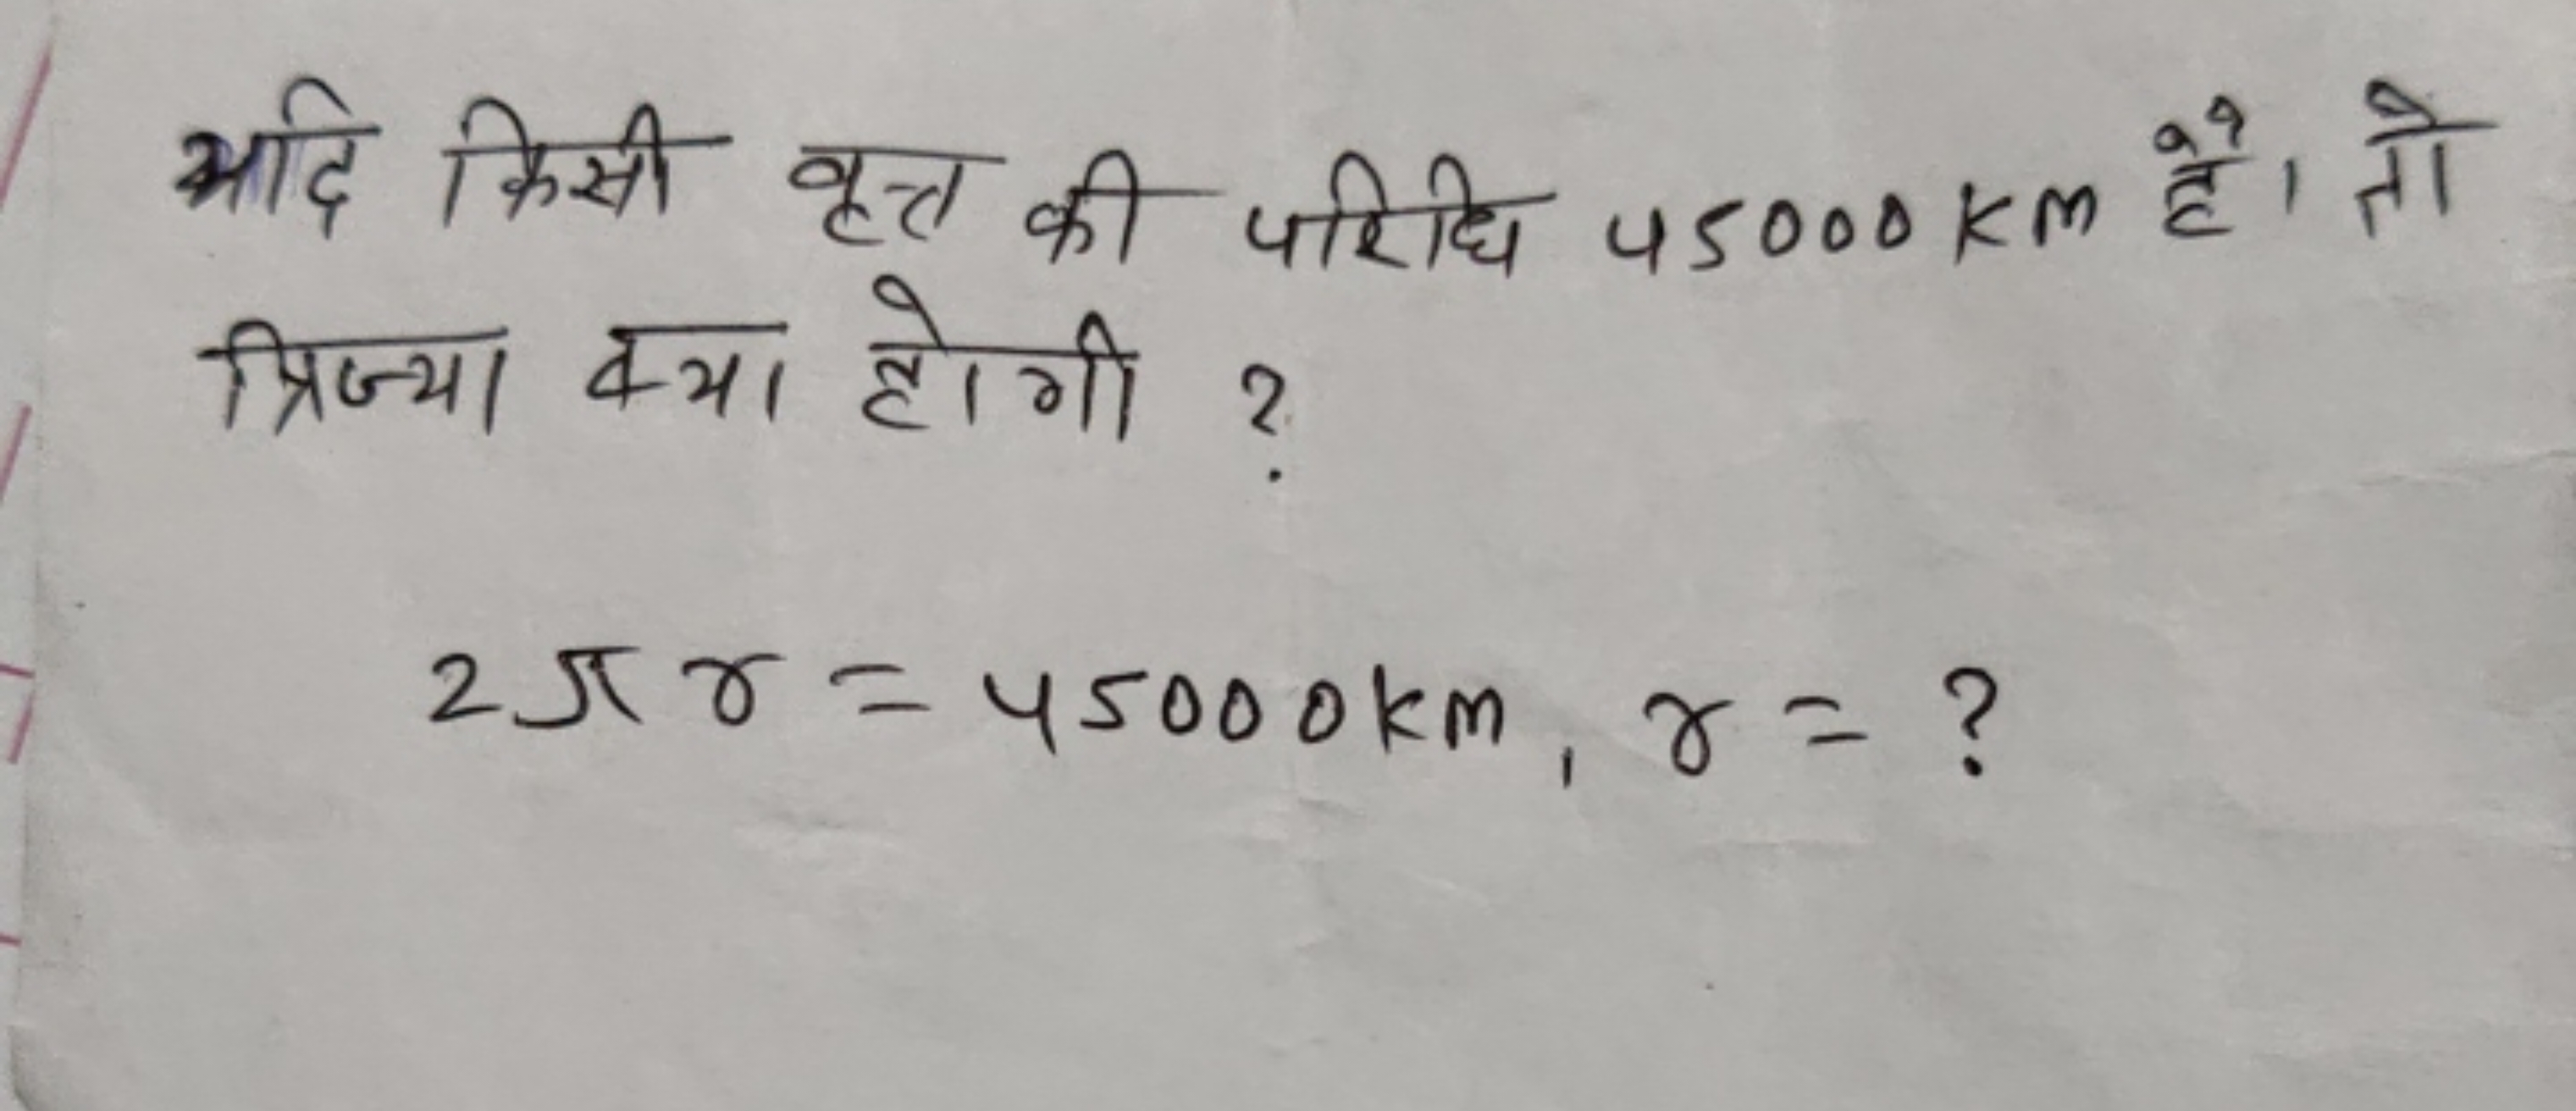 यदि किसी वृत्त की परिधि 45000 km है। तो
त्रिज्या क्या होगी ?
2πr = 45000 km, r = ?